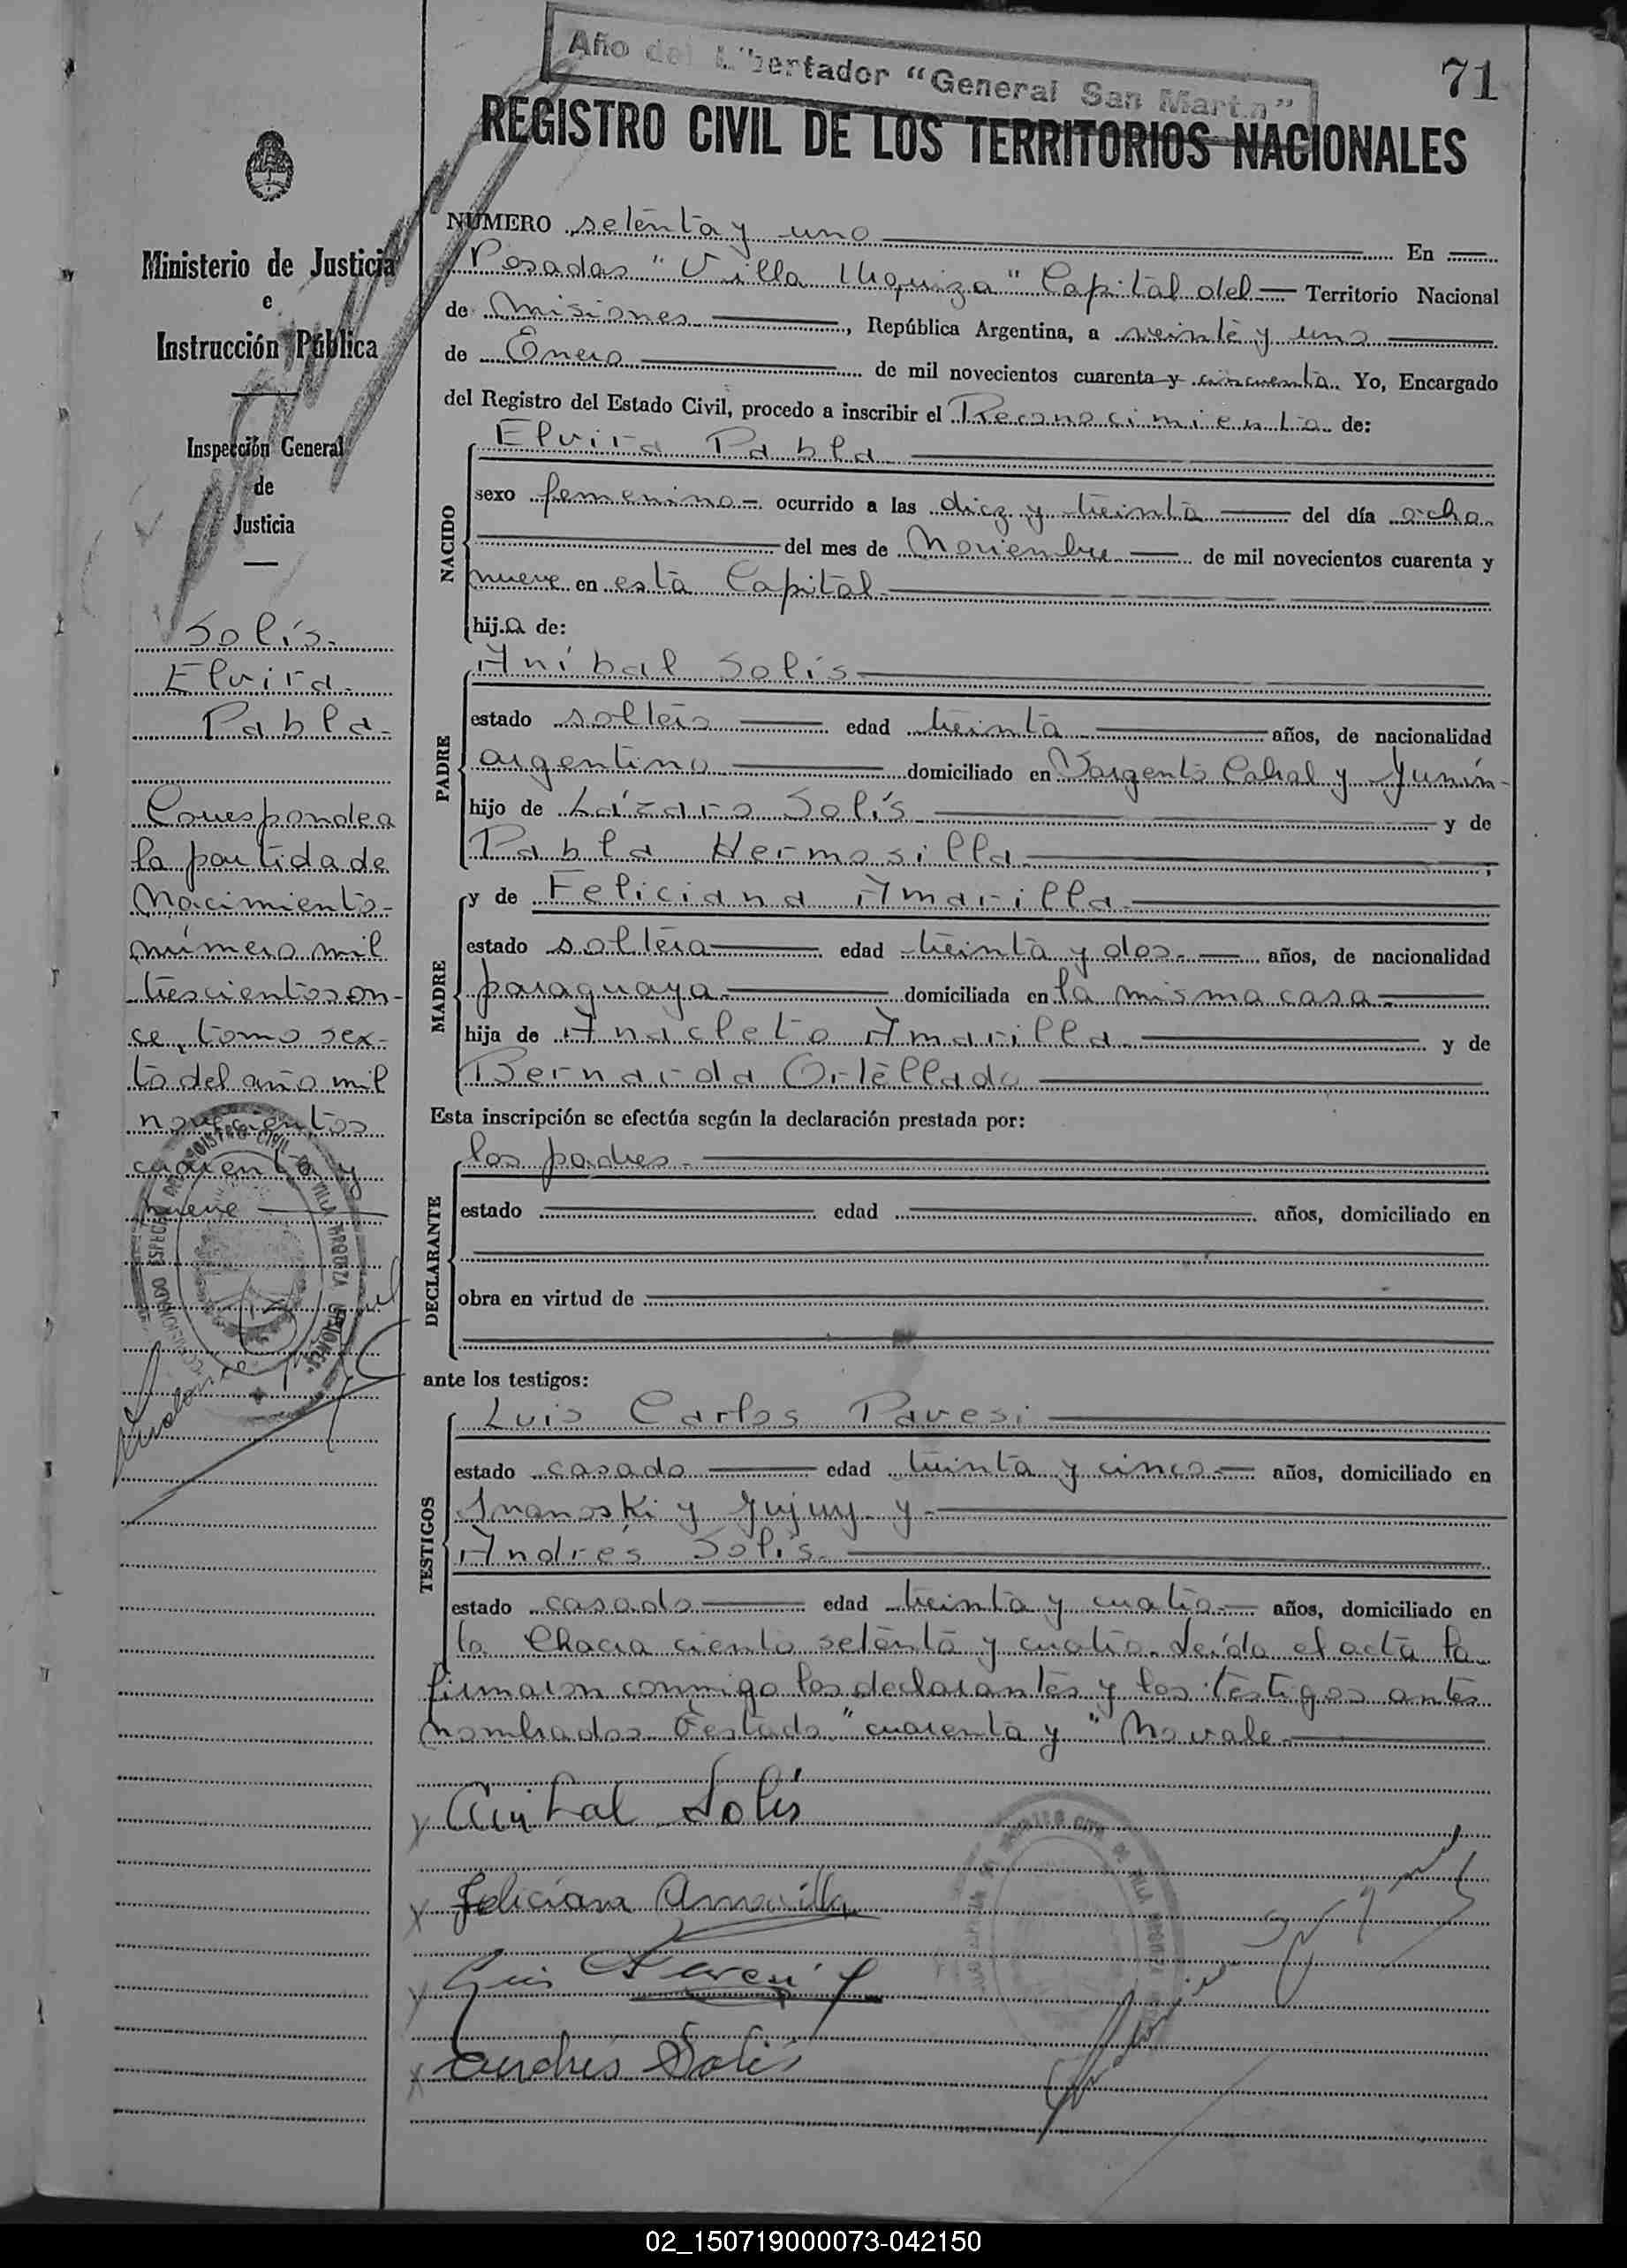 Año del Libertador "General San Martin"
71
REGISTRO CIVIL DE LOS TERRITORIOS NACIONALES
Ministerio de Justicia
e
Instrucción Pública
Inspección General
de
Justicia
Solís.
Elvira
Pabla
Corresponde a
la partida de
Nacimiento
número mil
trescientos on-
ce, tomo sex-
to del año mil
novecientos
cuarenta y
nueve
NUMERO setenta y uno En
Posadas "Villa Urquiza" Capital del Territorio Nacional
de Misiones, República Argentina, a veinte y uno
de Enero de mil novecientos cuarenta y cincuenta. Yo, Encargado
del Registro del Estado Civil, procedo a inscribir el Reconocimiento de:
NACIDO
Elvira Pabla
sexo femenino ocurrido a las diez y treinta del día ocho
del mes de Noviembre de mil novecientos cuarenta y
nueve en esta Capital
hija de:
PADRE
Aníbal Solís
estado soltero edad treinta años, de nacionalidad
argentino domiciliado en Sargento Cabral y Junín
hijo de Lázaro Solís y de
Pabla Hermosilla
MADRE
y de Feliciana Amarilla
estado soltera edad treinta y dos años, de nacionalidad
paraguaya domiciliada en la misma casa
hija de Anacleto Amarilla y de
Bernarda Ortellado
Esta inscripción se efectúa según la declaración prestada por:
DECLARANTE
los padres
estado edad años, domiciliado en
obra en virtud de
ante los testigos:
TESTIGOS
Luis Carlos Pavesi
estado casado edad treinta y cinco años, domiciliado en
Ivanoski y Jujuy y
Andrés Solís
estado casado edad treinta y cuatro años, domiciliado en
la Chacra ciento setenta y cuatro. Leída el acta la
firmaron conmigo los declarantes y los testigos antes
nombrados. Testado "cuarenta y" No vale
Aníbal Solís
Feliciana Amarilla
Luis Pavesi
Andrés Solís
02_150719000073-042150